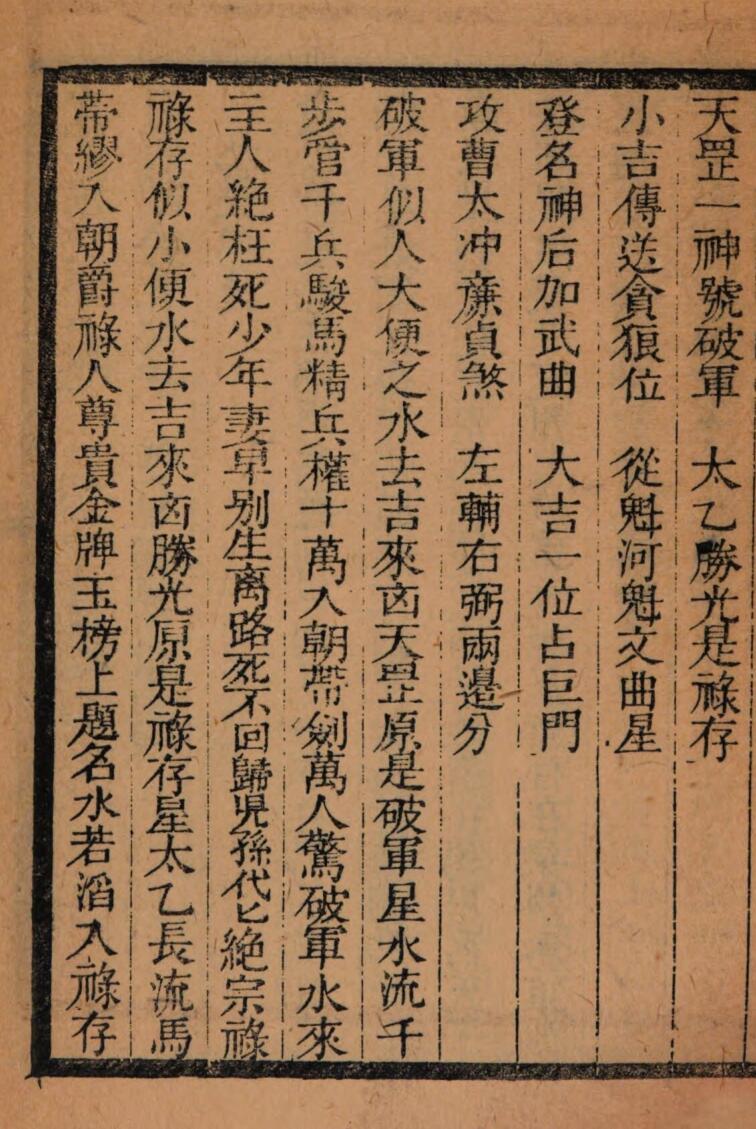 天罡一神號破軍　太乙勝光是祿存
小吉傳送貪狼位　從魁河魁文曲星
登名神后加武曲　大吉一位占巨門
攻曹太冲亷貞煞　左輔右弼兩邊分
破軍似人大便之水去吉來凶天罡原是破軍星水流千
步管千兵駿馬精兵權十萬入朝帶劍萬人驚破軍水來
二主人絶枉死少年妻早别生离路死不回歸兒孫代匕絶宗祿
祿存似小便水去吉來凶勝光原是祿存星太乙長流馬
帶繆入朝爵祿人尊貴金牌玉榜上題名水若滔入祿存